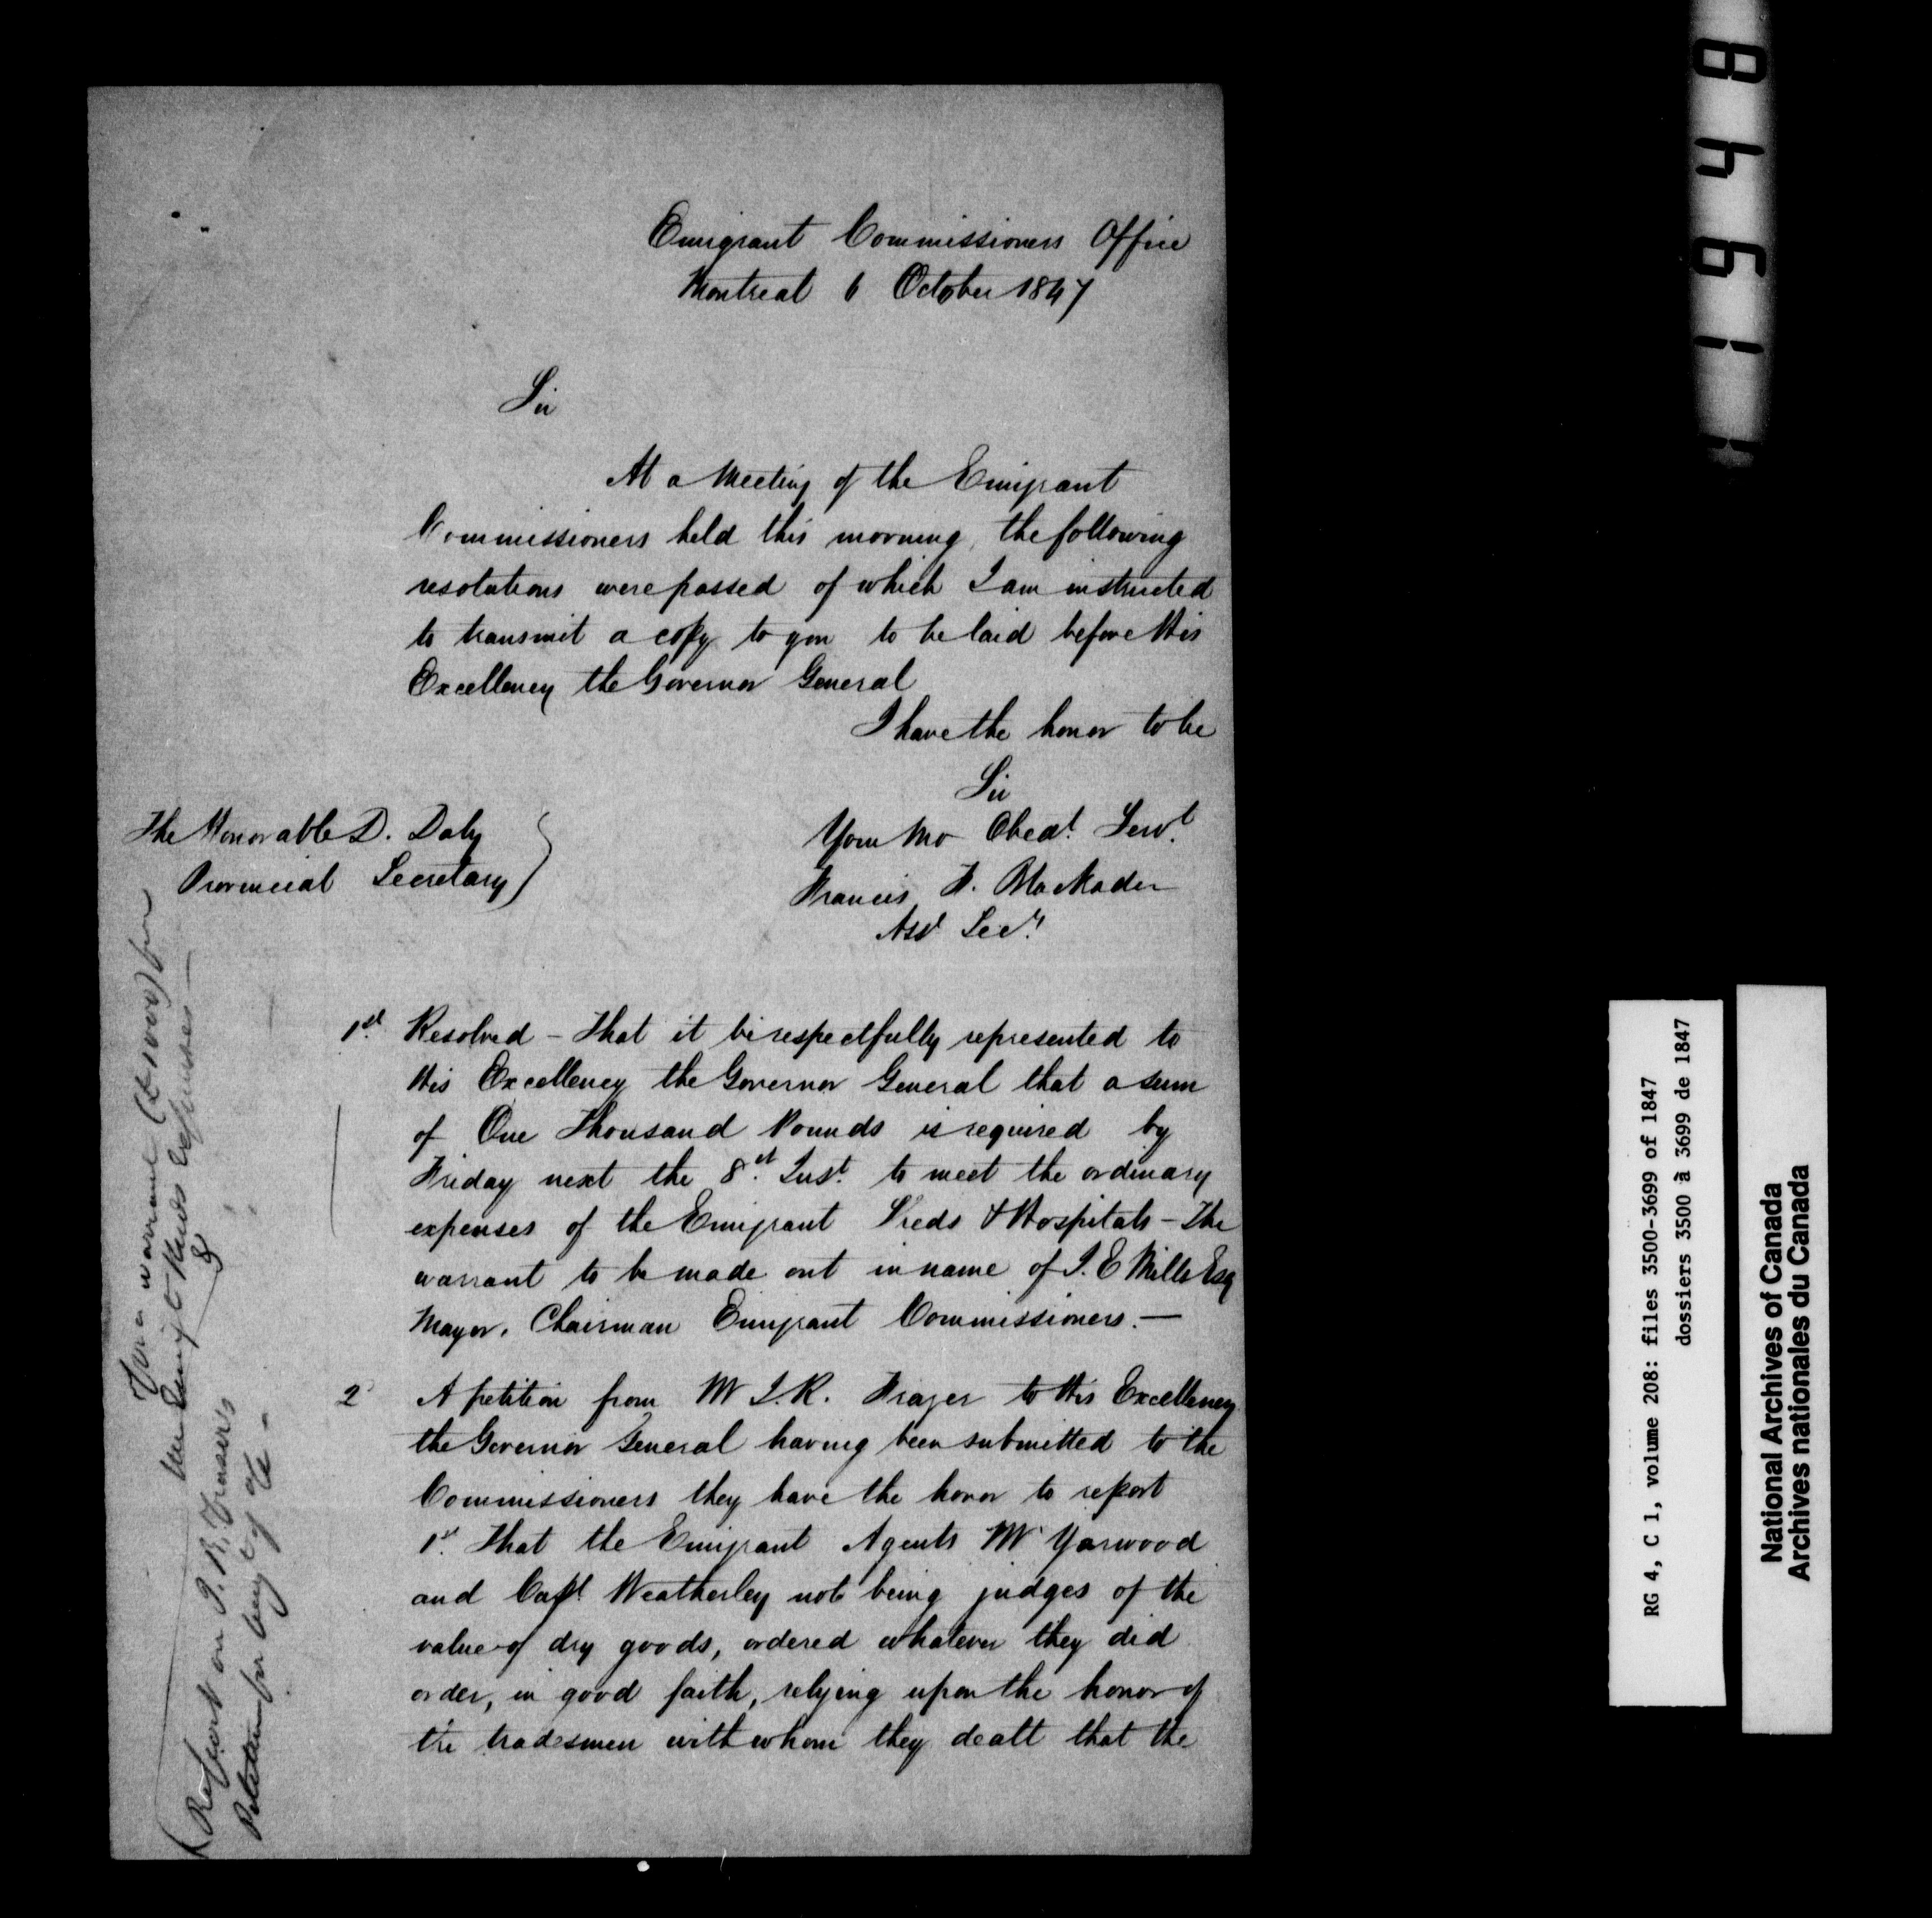 Emigrant Commissioners Office
Montreal 6 October 1847
Sir
At a Meeting of the Emigrant
Commissioners held this morning, the following
resolutions were passed of which I am instructed
to transmit a copy to you to be laid before His
Excellency the Governor General
I have the honor to be
Sir
Your Mo Obedt. Servt.
Francis
Asst Secy.
The Honorable D. Daly
Provincial Secretary
1st Resolved - That it be respectfully represented to
His Excellency the Governor General that a sum
of One Thousand Pounds is required by
Friday next the 8st. Inst. to meet the ordinary
expenses of the Emigrant Sheds & Hospitals - The
warrant to be made out in name of J. E Mills Esq
Mayor, Chairman Emigrant Commissioners. -
2 A petition from Mr J. R. Frazer to His Excellency
the Governor General having been submitted to the
Commissioners they have the honor to report
1st. That the Emigrant Agents Mr Yarwood
and Capt. Weatherley not being judges of the
value of dry goods, ordered whatever they did
order, in good faith, relying upon the honor of
the tradesmen with whom they dealt that the
For a warrant (£1000) for
Emigt expenses -
&
(Report on J. R. Fraser's
Petition for
8
4
9
1
RG 4, C 1, volume 208: files 3500-3699 of 1847
dossiers 3500 à 3699 de 1847
National Archives of Canada
Archives nationales du Canada